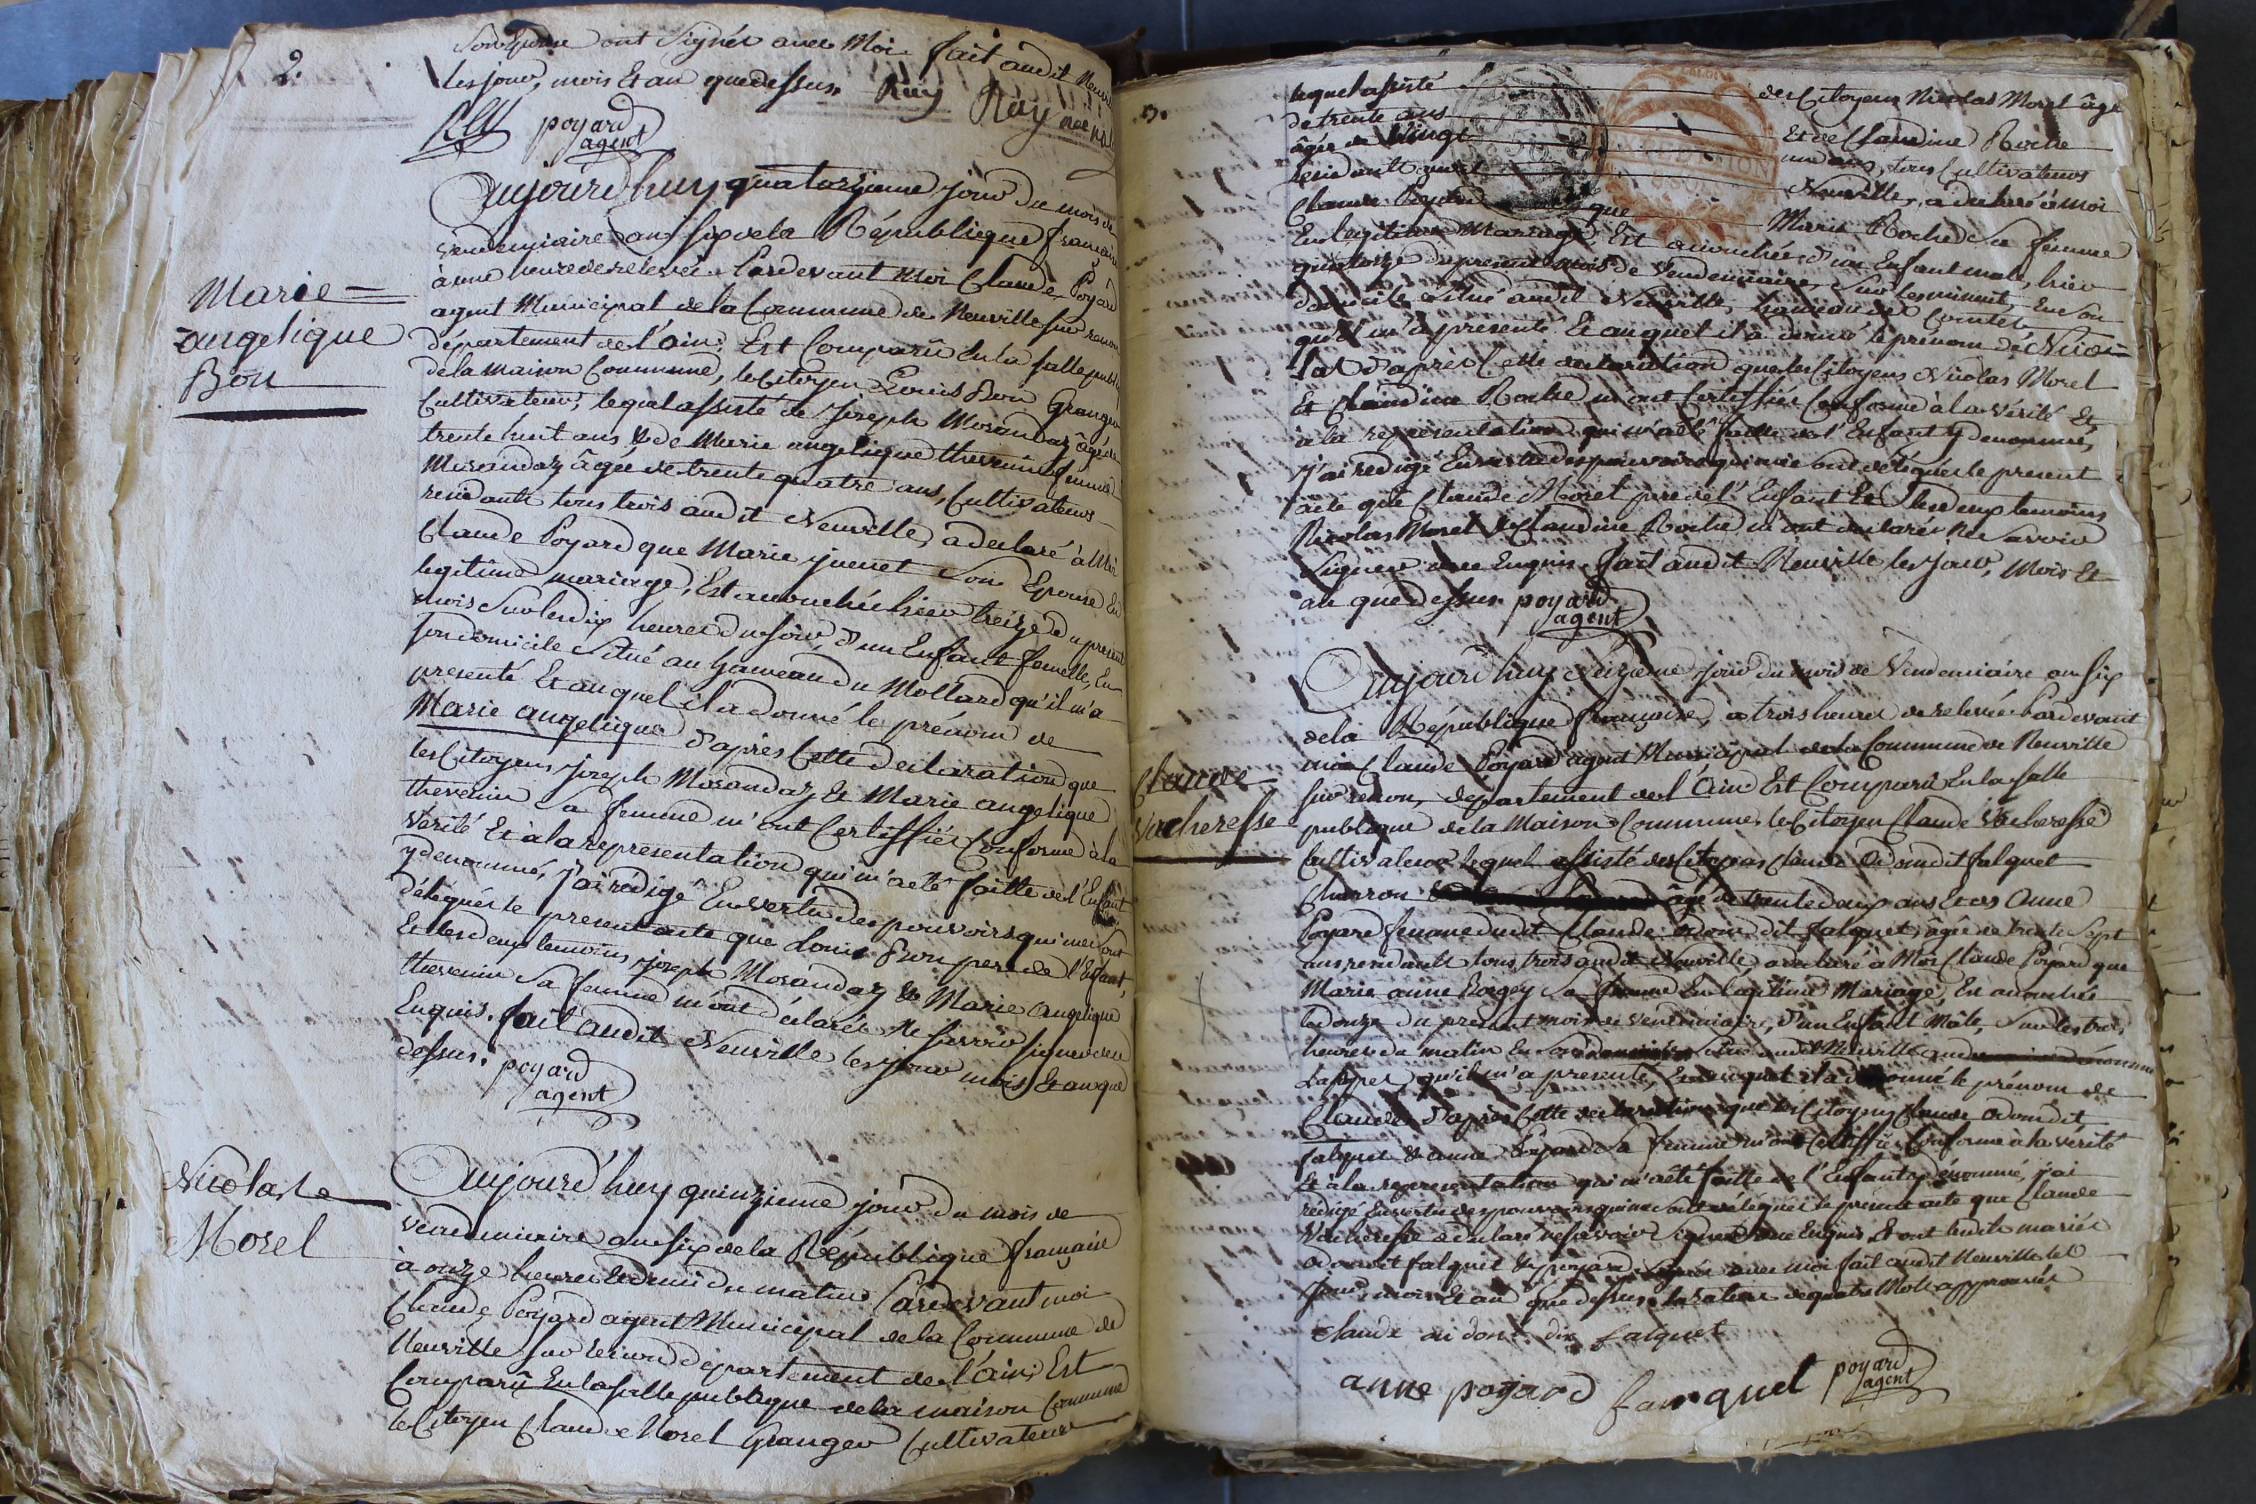 2.
ont Signés avec Moi fait audit Neuville
les jour, mois Et an que dessus. Ruy Ruy
poyard
agent
Marie
angelique
Bon
Aujourd'huy quatorzieme jour du mois de
vendemiaire an six de la République française
à une heure de relevée. Pardevant Moi Claude Poyard
agent Municipal de la Commune de Neuville sur renon
département de l'ain; Est Comparû En la salle publique
de la Maison Commune, le Citoyen Louis Bon Granger
Cultivateur, lequel assisté de Joseph Morandaz âgé de
trente huit ans, & de Marie angelique thevenin femme
Morandaz âgée de trente quatre ans, Cultivateurs
residants tous trois audit Neuville, a declaré à Moi
Claude Poyard que Marie juenet Son Epouse En
legitime mariage, Est accouchée hier treize du present
mois Sur les dix heures du soir, d'un Enfant femelle, En
son domicile Situé au hameau du Mollard qu'il m'a
presenté Et auquel il a donné le prénom de
Marie angelique d'après Cette déclaration que
les Citoyens Joseph Morandaz & Marie angelique
thevenin Sa femme m'ont Certiffiés Conforme à la
Vérité Et à la representation qui m'a été faitte de l'Enfant
y denommé, j'ai rédigé En vertu des pouvoirs qui me sont
délégués le present acte que Louis Bon pere de l'Enfant,
Et les deux temoins Joseph Morandaz & Marie angelique
thevenin Sa femme m'ont déclarés Ne savoir signer de ce
Enquis. fait audit Neuville les jour mois Et an que
dessus. poyard
agent
Nicolas
Morel
Aujourd'huy quinzieme jour du mois de
vendemiaire an six de la République française
à onze heures & demi du matin Pardevant moi
Claude Poyard agent Municipal de la Commune de
Neuville sur renon département de l'ain, Est
Comparû En la salle publique de la maison Commune
le Citoyen Claude Morel Granger Cultivateur
3.
lequel assisté des Citoyens Nicolas Morel âgé
de trente ans Et de Claudine Roche
âgée de Vingt un ans, tous Cultivateurs
residants audit Neuville, a declaré à moi
Claude Poyard que Marie Roche Sa femme
En legitime Mariage, Est accouchée d'un Enfant male, hier
quatorze du present mois de Vendemiaire, Sur les minuit En son
domicile Situé audit Neuville, hameau de
qu'il m'a presenté Et auquel il a donné le prénom de Nico=
las d'après Cette declaration que les Citoyens Nicolas Morel
Et Claudine Roche m'ont Certiffiés Conforme à la Vérité Et
à la representation qui m'a été faitte de l'Enfant y denommé,
j'ai redigé En vertu des pouvoirs qui me sont délégués le present
acte que Claude Morel pere de l'Enfant Et les deux temoins
Nicolas Morel & Claudine Roche m'ont declarés Ne Savoir
Signer de ce Enquis. fait audit Neuville les jour, mois Et
an que dessus. poyard
agent
Claude
Vacheresse
Aujourd'huy Seizieme jour du mois de Vendemiaire an six
de la République française, a trois heures de relevée. Pardevant
moi Claude Poyard agent Municipal de la Commune de Neuville
sur renon, département de l'ain Est Comparû En la salle
publique de la Maison Commune, le Citoyen Claude Vacheresse
Cultivateur lequel assisté des Citoyens Claude odom dit falquet
charron âgé de trente deux ans Et de Anne
Poyard femme dudit Claude odom dit falquet, âgée de trente Sept
ans residants tous trois audit Neuville, a declaré à Moi Claude Poyard que
Marie anne Borgey Sa femme En legitime Mariage, Est accouchée
le douze du present mois de vendemiaire, d'un Enfant Mâle, Sur les trois
heures du matin En Situé audit Neuville
qu'il m'a presenté, Et auquel il a donné le prénom de
Claude d'après Cette declaration que les Citoyens Claude odom dit
falquet & anne Poyard Sa femme m'ont Certiffiés Conforme à la vérité
Et à la representation qui m'a été faitte de l'Enfant y denommé, j'ai
redigé En vertu des pouvoirs qui me sont délégués le present acte que Claude
Vacheresse a declaré ne savoir Signer de ce Enquis. Et ont lesdits mariés
odom dit falquet & poyard Signés avec moi fait audit Neuville les
jour, mois Et an que dessus. la rature de quatre Mots approuvés
claude dit falquet
anne poyard falquet poyard
agent